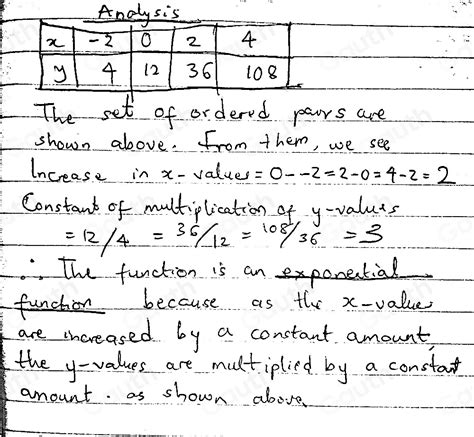 Analysis
x -2 0 2 4
y 4 12 36 108
The set of ordered pairs are
shown above. From them, we see
Increase in x-values = 0--2 = 2-0 = 4-2 = 2
Constant of multiplication of y-values
= 12/4 = 36/12 = 108/36 = 3
∴ The function is an exponential
function because as the x-values
are increased by a constant amount,
the y-values are multiplied by a constant
amount. as shown above.